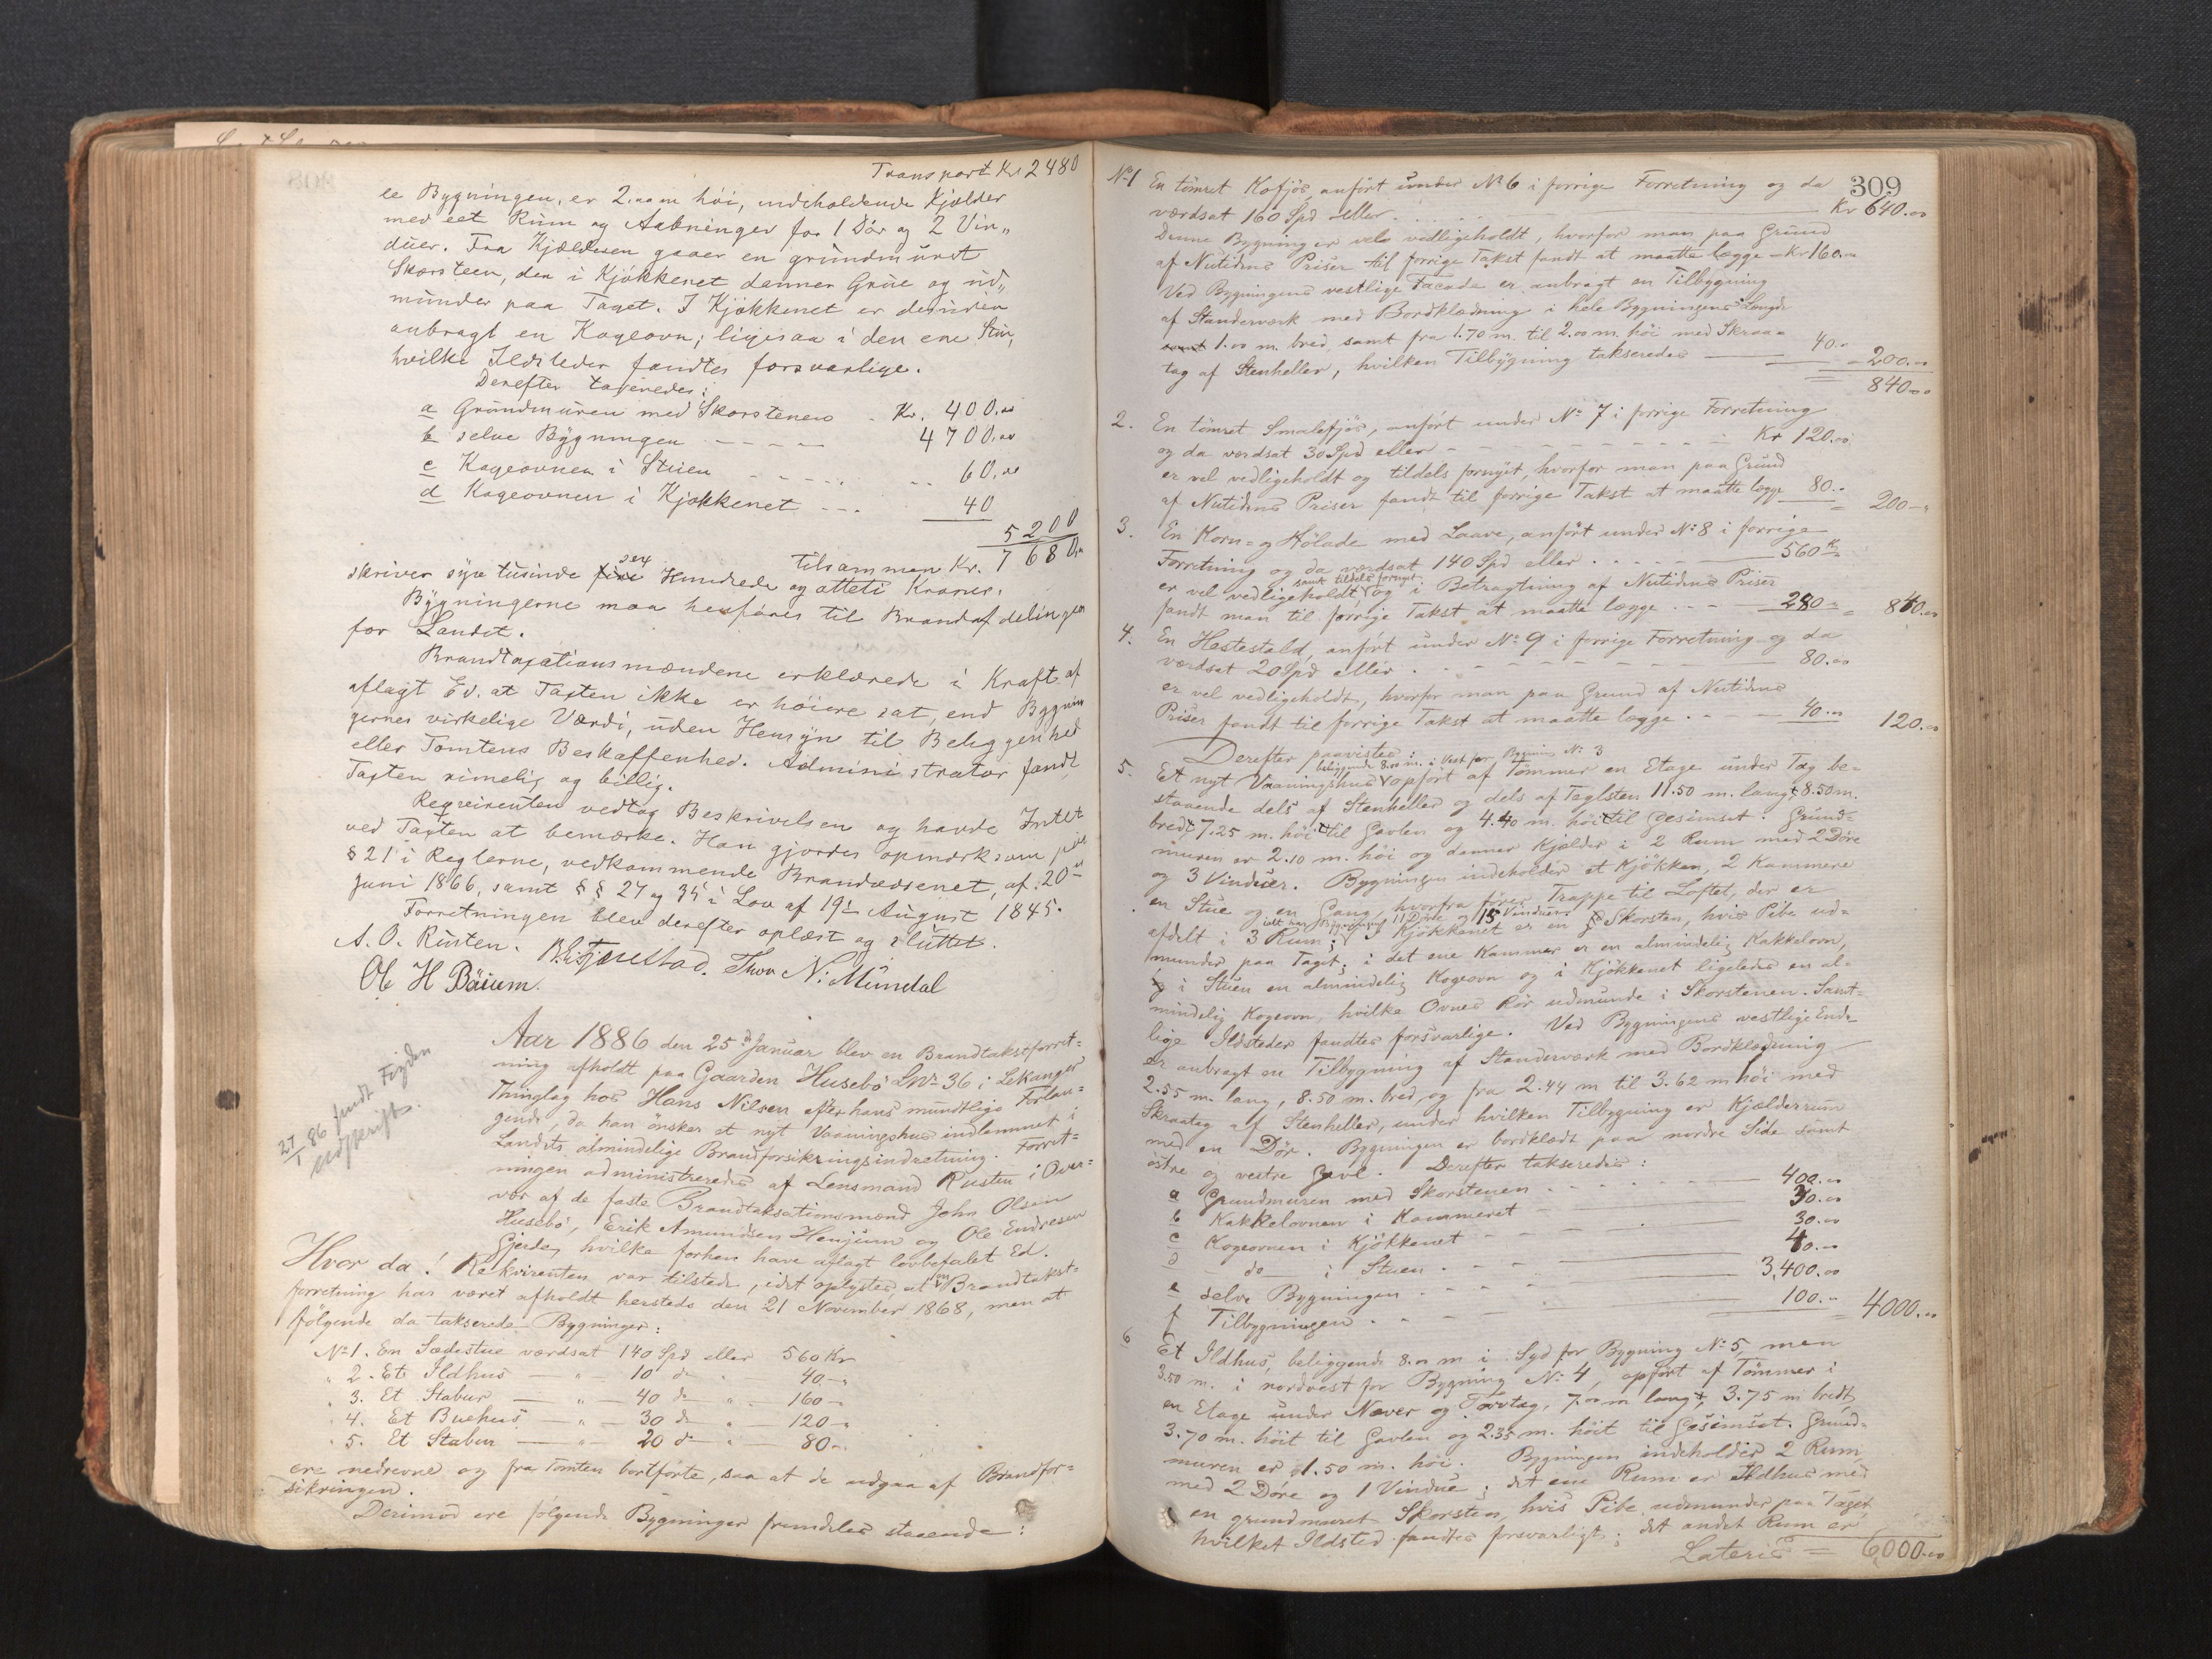 Transport Kr. 2480
le Bygningen, er 2.00 m høi, indeholdende Kjælder
med eet Rum og Aabninger for 1 Dør og 2 Vin„
duer. Fra Kjælderen gaaer en grundmuret
Skorsteen, der i Kjøkkenet danner Grue og ud„
munder paa Taget. I Kjøkkenet er desuden
anbragt en Kogeovn; ligesaa i den ene Stue,
hvilke Ildsteder fandtes forsvarlige.
Derefter taxeredes:
a Grundmuren med Skorstenen - Kr. 400.00
b selve Bygningen - - - - 4700.00
c Kogeovnen i Stuen - - - - - 60.00
d Kogeovnen i Kjøkkenet - - - 40
5200
Tilsammen Kr. 7680.00
skriver syv tusinde fire sex Hundrede og otteti Kroner.
Bygningerne maa henføres til Brandafdelingen
for Landet.
Brandtaxationsmændene erklærede i Kraft af
aflagt Ed. at Taxten ikke er høiere sat, end Bygnin
gernes virkelige Værdi, uden Hensyn til Beliggenhed
eller Tomtens Beskaffenhed. Administrator fandt
Taxten rimelig og billig.
Reqvirenten vedtog Beskrivelsen og havde Intet
ved Taxten at bemærke. Han gjordes opmærksom paa
§ 21 i Reglerne, vedkommende Brandvæsenet, af 20de
Juni 1866, samt § § 27 og 35 i Lov af 19de August 1845.
Forretningen blev derefter oplæst og sluttet.
A. O. Rusten. Thor N. Mundal
Ole H Bøium.
27/1 86 sendt Fogden
udskrift.
Aar 1886 den 25de Januar blev en Brandtakstforret=
ning afholdt paa Gaarden Husebø LNo 36 i Lekanger
Thinglag hos Hans Nilsen efter hans mundtlige Forlan=
gende, da han ønsker et nyt Vaaningshus indlemmet i
Landets almindelige Brandforsikringsindretning. Forret=
ningen administreredes af Lensmand Rusten i Over=
vær af de faste Brandtaksationsmænd John Olsen
Husebø, Erik Amundsen Henjum og Ole Endresen
Gjerde, hvilke forhen have aflagt lovbefalet Ed.
Hvor da! Rekvirenten var tilstede, idet oplystes, at en Brandtakst=
forretning har været afholdt hersteds den 21 November 1868, men at
følgende da takserede Bygninger:
No 1. En Sædestue værdsat 140 Spd eller 560 Kr
„ 2. Et Ildhus — „ — 10 do „ 40 — „
„ 3. Et Stabur — „ — 40 do „ 160 —
„ 4. Et Buehus — „ — 30 do „ 120 — „
„ 5. Et Stabur — „ — 20 do „ 80 — „
ere nedrevne og fra Tomten bortførte, saa at de udgaa af Brandfor=
sikringen.
Derimod ere følgende Bygninger fremdeles staaende:
309
No 1 En tømret Kofjøs, anført under No 6 i forrige Forretning og da
værdsat 160 Spd eller - - - Kr 640.00
Denne Bygning er vel vedligeholdt, hvorfor man paa Grund
af Nutidens Priser til forrige Takst fandt at maatte lægge - Kr 160.00
Ved Bygningens vestlige Facade er anbragt en Tilbygning
af Standerværk med Bordklædning i hele Bygningens Længde
1.00 m. bred samt fra 1.70 m. til 2.00 m. høi med Skraa=
tag af Stenheller, hvilken Tilbygning takseredes — 40.- = 200.00
840.00
2. En tømret Smalefjøs, anført under No 7 i forrige Forretning
og da værdsat 30 Spd eller - - - - Kr 120.00
er vel vedligeholdt og tildels fornyet, hvorfor man paa Grund
af Nutidens Priser fandt til forrige Takst at maatte lægge 80.- = 200 - „
3. En Korn- og Hølade med Laave, anført under No 8 i forrige
Forretning og da værdsat 140 Spd eller - - - 560 Kr
samt tildels fornyet
er vel vedligeholdt og i Betragtning af Nutidens Priser
fandt man til forrige Takst at maatte lægge - - - 280 - = 840.00
4. En Hestestald, anført under No 9 i forrige Forretning og da
værdsat 20 Spd eller - - - - 80.00
er vel vedligeholdt, hvorfor man paa Grund af Nutidens
Priser fandt til forrige Takst at maatte lægge - - - 40.00 120.00
Derefter paavistes:
beliggende 8.00 m. i Vest for Bygning No 3
5. Et nyt Vaaningshus opført af Tømmer en Etage under Tag be=
staaende dels af Stenheller og dels af Taglsten 11.50 m. langt, 8.50 m.
bredt, 7.25 m. høit til Gavlen og 4.40 m. høit til Gesimset. Grund=
muren er 2.10 m. høi og danner Kjælder i 2 Rum med 2 Døre
og 3 Vinduer. Bygningen indeholder et Kjøkken, 2 Kammere
en Stue og en Gang, hvorfra fører Trappe til Loftet, der er
idt har Bygningen 11 Døre og 15 Vinduer.
afdelt i 3 Rum; I Kjøkkenet er en Skorsten, hvis Pibe ud=
munder paa Taget; i det ene Kammer er en almindelig Kakkelovn,
i Stuen en almindelig Kogeovn og i Kjøkkenet ligeledes en al=
mindelig Kogeovn, hvilke Ovnes Rør udmunde i Skorstenen. Samt=
lige Ildsteder fandtes forsvarlige. Ved Bygningens vestlige Ende
er anbragt en Tilbygning af Standerværk med Bordklædning
2.55 m. lang, 8.50 m. bred, og fra 2.44 m til 3.62 m høi med
Skraatag af Stenheller, under hvilken Tilbygning er Kjælderrum
med en Dør. Bygningen er bordklædt paa nordre Side samt
østre og vestre Gavl. Derefter takseredes:
a Grundmuren med Skorstenen - - - 400.00
b Kakkelovnen i Kammeret - 30.00
c Kogeovnen i Kjøkkenet - - 30.00
d do i Stuen - - - 40.00
e selve Bygningen - - - 3,400.00
f Tilbygningen - - - 100.00 = 4000.00
6 Et Ildhus, beliggende 8.00 m i Syd for Bygning No 5, men
3.50 m. i nordvest for Bygning No 4, opført af Tømmer i
en Etage under Næver og Torvtag, 7.00 m langt, 3.75 m bredt,
3.70 m. høit til Gavlen og 2.35 m. høit til Gesimset. Grund=
muren er 1.50 m. høi. Bygningen indeholder 2 Rum,
med 2 Døre og 1 Vindue; det ene Rum er Ildhus med
en grundmuret Skorsten, hvis Pibe udmunder paa Taget,
hvilket Ildsted fandtes forsvarligt; det andet Rum er
Lateris = 6,000.00